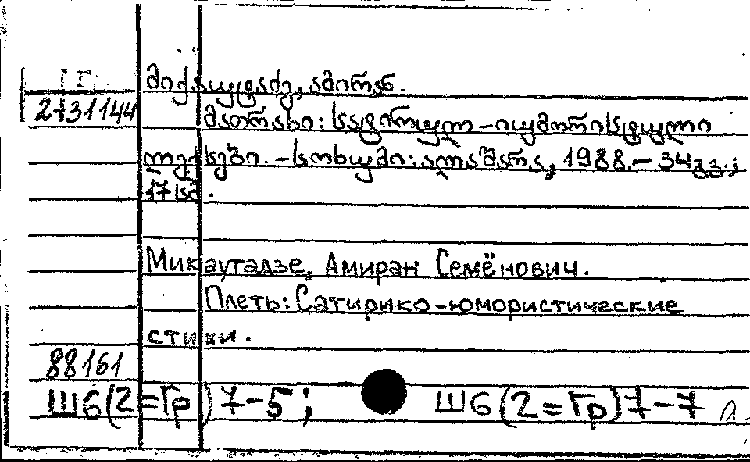 მიქაუტაძე, ამირან.
2431144
მათრახი: სატირულ-იუმორისტული
ლექსები. - სოხუმი: ალაშარა, 1988. - 34გვ.;
17სმ.
Микаутадзе, Амиран Семёнович.
Плеть: Сатирико-юмористические
стихи.
88161
Ш6(2=Гр)7-5; Ш6(2=Гр)7-7